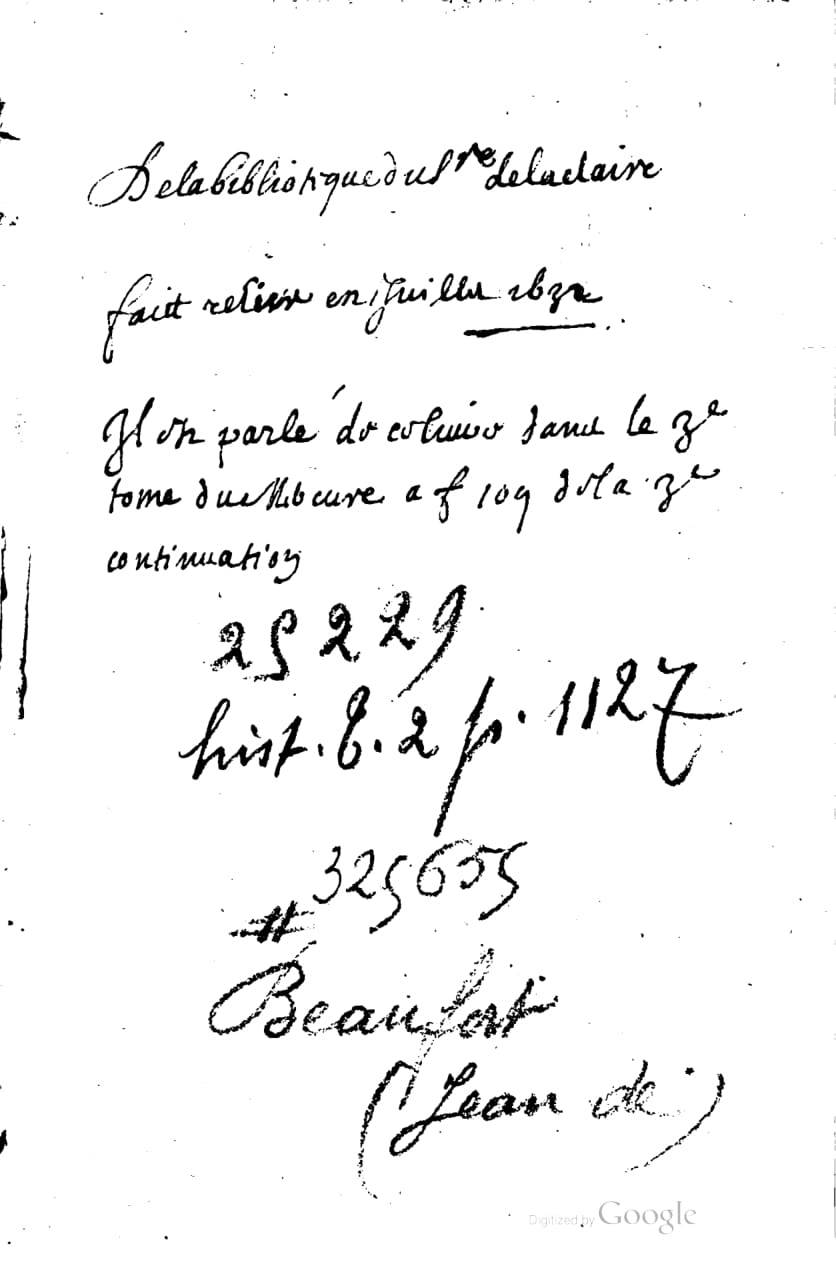 De la bibliotique du Sre de la claire
fait relier en juillet 1632
Il est parlé de ce livre dans le 3e
tome du Mercure a f 109 de la 3e
continuation
25229
hist. t. 2 p. 1127
325655
#
Beaufort
(Jean de)
Digitized by Google